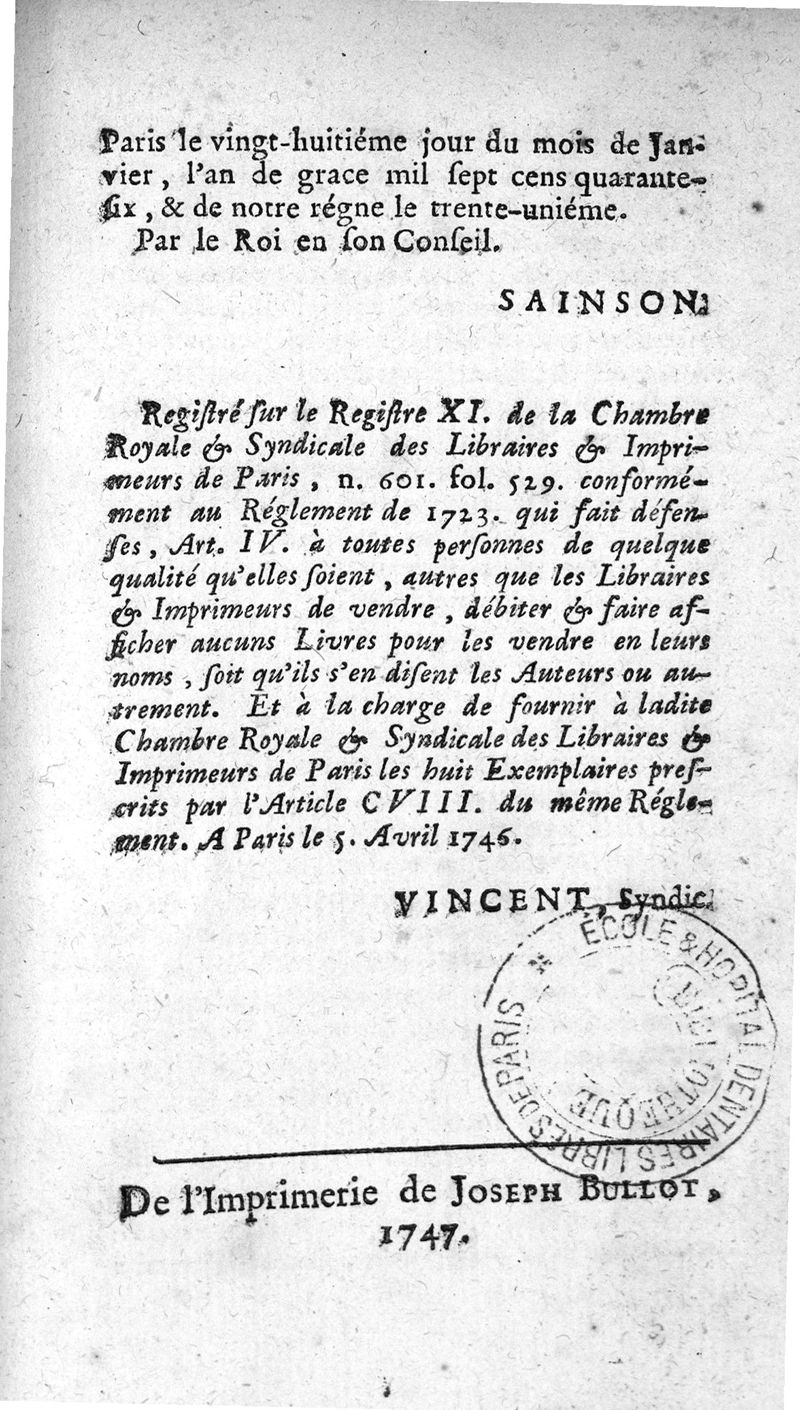 Paris le vingt-huitiéme jour du mois de Jan-
vier, l'an de grace mil ſept cens quarante-
ſix, & de notre régne le trente-uniéme.
Par le Roi en ſon Conſeil.
SAINSON.
Regiſtré ſur le Regiſtre XI. de la Chambre
Royale & Syndicale des Libraires & Impri-
meurs de Paris, n. 601. fol. 529. conformé-
ment au Réglement de 1723. qui fait défen-
ſes, Art. IV. à toutes perſonnes de quelque
qualité qu'elles ſoient, autres que les Libraires
& Imprimeurs de vendre, débiter & faire af-
ficher aucuns Livres pour les vendre en leurs
noms, ſoit qu'ils s'en diſent les Auteurs ou au-
trement. Et à la charge de fournir à ladite
Chambre Royale & Syndicale des Libraires &
Imprimeurs de Paris les huit Exemplaires preſ-
crits par l'Article CVIII. du même Régle-
ment. A Paris le 5. Avril 1746.
VINCENT, Syndic.
ÉCOLE & HOPITAL DENTAIRES LIBRES DE PARIS
BIBLIOTHEQUE
De l'Imprimerie de JOSEPH BULLOT,
1747.